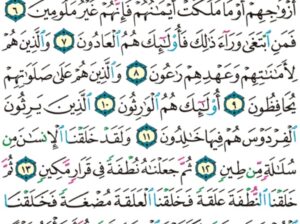 أَزْوَٰجِهِمْ أَوْ مَا مَلَكَتْ أَيْمَـٰنُهُمْ فَإِنَّهُمْ غَيْرُ مَلُومِينَ ٦
فَمَنِ ٱبْتَغَىٰ وَرَآءَ ذَٰلِكَ فَأُو۟لَـٰٓئِكَ هُمُ ٱلْعَادُونَ ٧ وَٱلَّذِينَ هُمْ
لِأَمَـٰنَـٰتِهِمْ وَعَهْدِهِمْ رَٰعُونَ ٨ وَٱلَّذِينَ هُمْ عَلَىٰ صَلَوَٰتِهِمْ
يُحَافِظُونَ ٩ أُو۟لَـٰٓئِكَ هُمُ ٱلْوَٰرِثُونَ ١٠ ٱلَّذِينَ يَرِثُونَ
ٱلْفِرْدَوْسَ هُمْ فِيهَا خَـٰلِدُونَ ١١ وَلَقَدْ خَلَقْنَا ٱلْإِنسَـٰنَ مِن
سُلَـٰلَةٍ مِّن طِينٍ ١٢ ثُمَّ جَعَلْنَـٰهُ نُطْفَةً فِى قَرَارٍ مَّكِينٍ ١٣ ثُمَّ
خَلَقْنَا ٱلنُّطْفَةَ عَلَقَةً فَخَلَقْنَا ٱلْعَلَقَةَ مُضْغَةً فَخَلَقْنَا